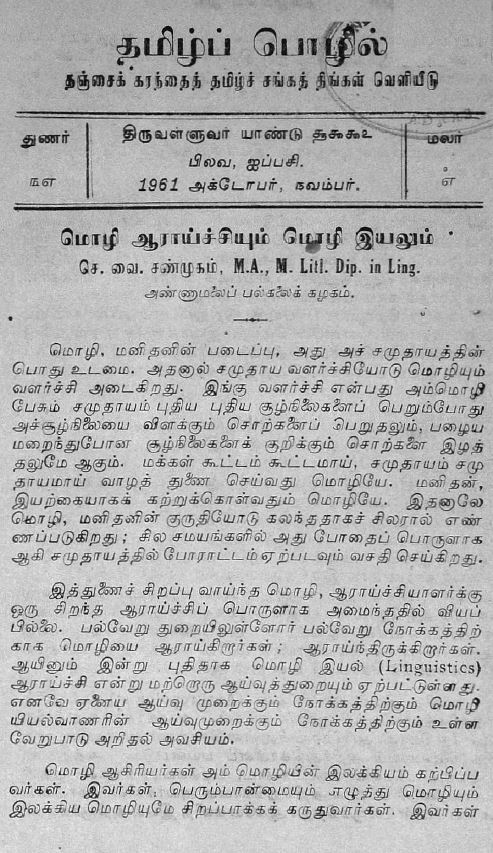 தமிழ்ப் பொழில்
தஞ்சைக் கரந்தைத் தமிழ்ச் சங்கத் திங்கள் வெளியீடு
துணர்
௩௭
திருவள்ளுவர் யாண்டு ௧௯௯௨
பிலவ, ஐப்பசி.
1961 அக்டோபர், நவம்பர்.
மலர்
௭
மொழி ஆராய்ச்சியும் மொழி இயலும்
செ. வை. சண்முகம், M.A., M. Litl. Dip. in Ling.
அண்ணாமலைப் பல்கலைக் கழகம்.
மொழி, மனிதனின் படைப்பு, அது அச் சமுதாயத்தின்
பொது உடமை. அதனால் சமுதாய வளர்ச்சியோடு மொழியும்
வளர்ச்சி அடைகிறது. இங்கு வளர்ச்சி என்பது அம்மொழி
பேசும் சமுதாயம் புதிய புதிய சூழ்நிலைகளைப் பெறும்போது
அச்சூழ்நிலையை விளக்கும் சொற்களைப் பெறுதலும், பழைய
மறைந்துபோன சூழ்நிலைகளைக் குறிக்கும் சொற்களை இழத்
தலுமே ஆகும். மக்கள் கூட்டம் கூட்டமாய், சமுதாயம் சமு
தாயமாய் வாழத் துணை செய்வது மொழியே. மனிதன்,
இயற்கையாகக் கற்றுக்கொள்வதும் மொழியே. இதனாலே
மொழி, மனிதனின் குருதியோடு கலந்ததாகச் சிலரால் எண்
ணப்படுகிறது; சில சமயங்களில் அது போதைப் பொருளாக
ஆகி சமுதாயத்தில் போராட்டம் ஏற்படவும் வசதி செய்கிறது.
இத்துணைச் சிறப்பு வாய்ந்த மொழி, ஆராய்ச்சியாளர்க்கு
ஒரு சிறந்த ஆராய்ச்சிப் பொருளாக அமைந்ததில் வியப்
பில்லை. பல்வேறு துறையிலுள்ளோர் பல்வேறு நோக்கத்திற்
காக மொழியை ஆராய்கிறார்கள்; ஆராய்ந்திருக்கிறார்கள்.
ஆயினும் இன்று புதிதாக மொழி இயல் (Linguistics)
ஆராய்ச்சி என்று மற்றொரு ஆய்வுத்துறையும் ஏற்பட்டுள்ளது.
எனவே ஏனைய ஆய்வு முறைக்கும் நோக்கத்திற்கும் மொழி
யியல்வாணரின் ஆய்வுமுறைக்கும் நோக்கத்திற்கும் உள்ள
வேறுபாடு அறிதல் அவசியம்.
மொழி ஆசிரியர்கள் அம் மொழியின் இலக்கியம் கற்பிப்ப
வர்கள். இவர்கள், பெரும்பான்மையும் எழுத்து மொழியும்
இலக்கிய மொழியுமே சிறப்பாகக் கருதுவார்கள். இவர்கள்